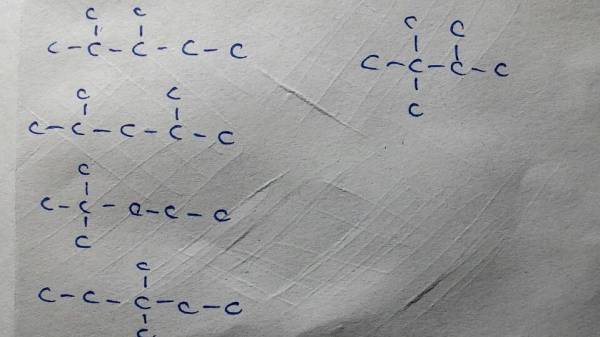 C C
C - C - C - C - C
C C
C - C - C - C - C
C
C - C - C - C - C
C
C
C - C - C - C - C
C
C C
C - C - C - C
C